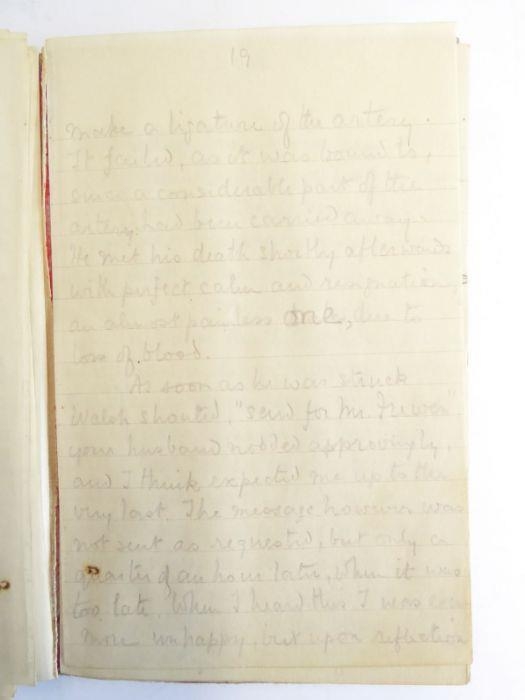 19
make a ligature of the artery.
It failed, as it was bound to,
since a considerable part of the
artery had been carried away.
He met his death shortly afterwards
with perfect calm and resignation,
an almost painless one, due to
loss of blood.
As soon as he was struck
Walsh shouted, "send for Mr. Frewen"
your husband nodded approvingly,
and I think, expected me up to the
very last. The message however was
not sent as requested, but only a
quarter of an hour later, when it was
too late. When I heard this I was even
more unhappy, but upon reflection